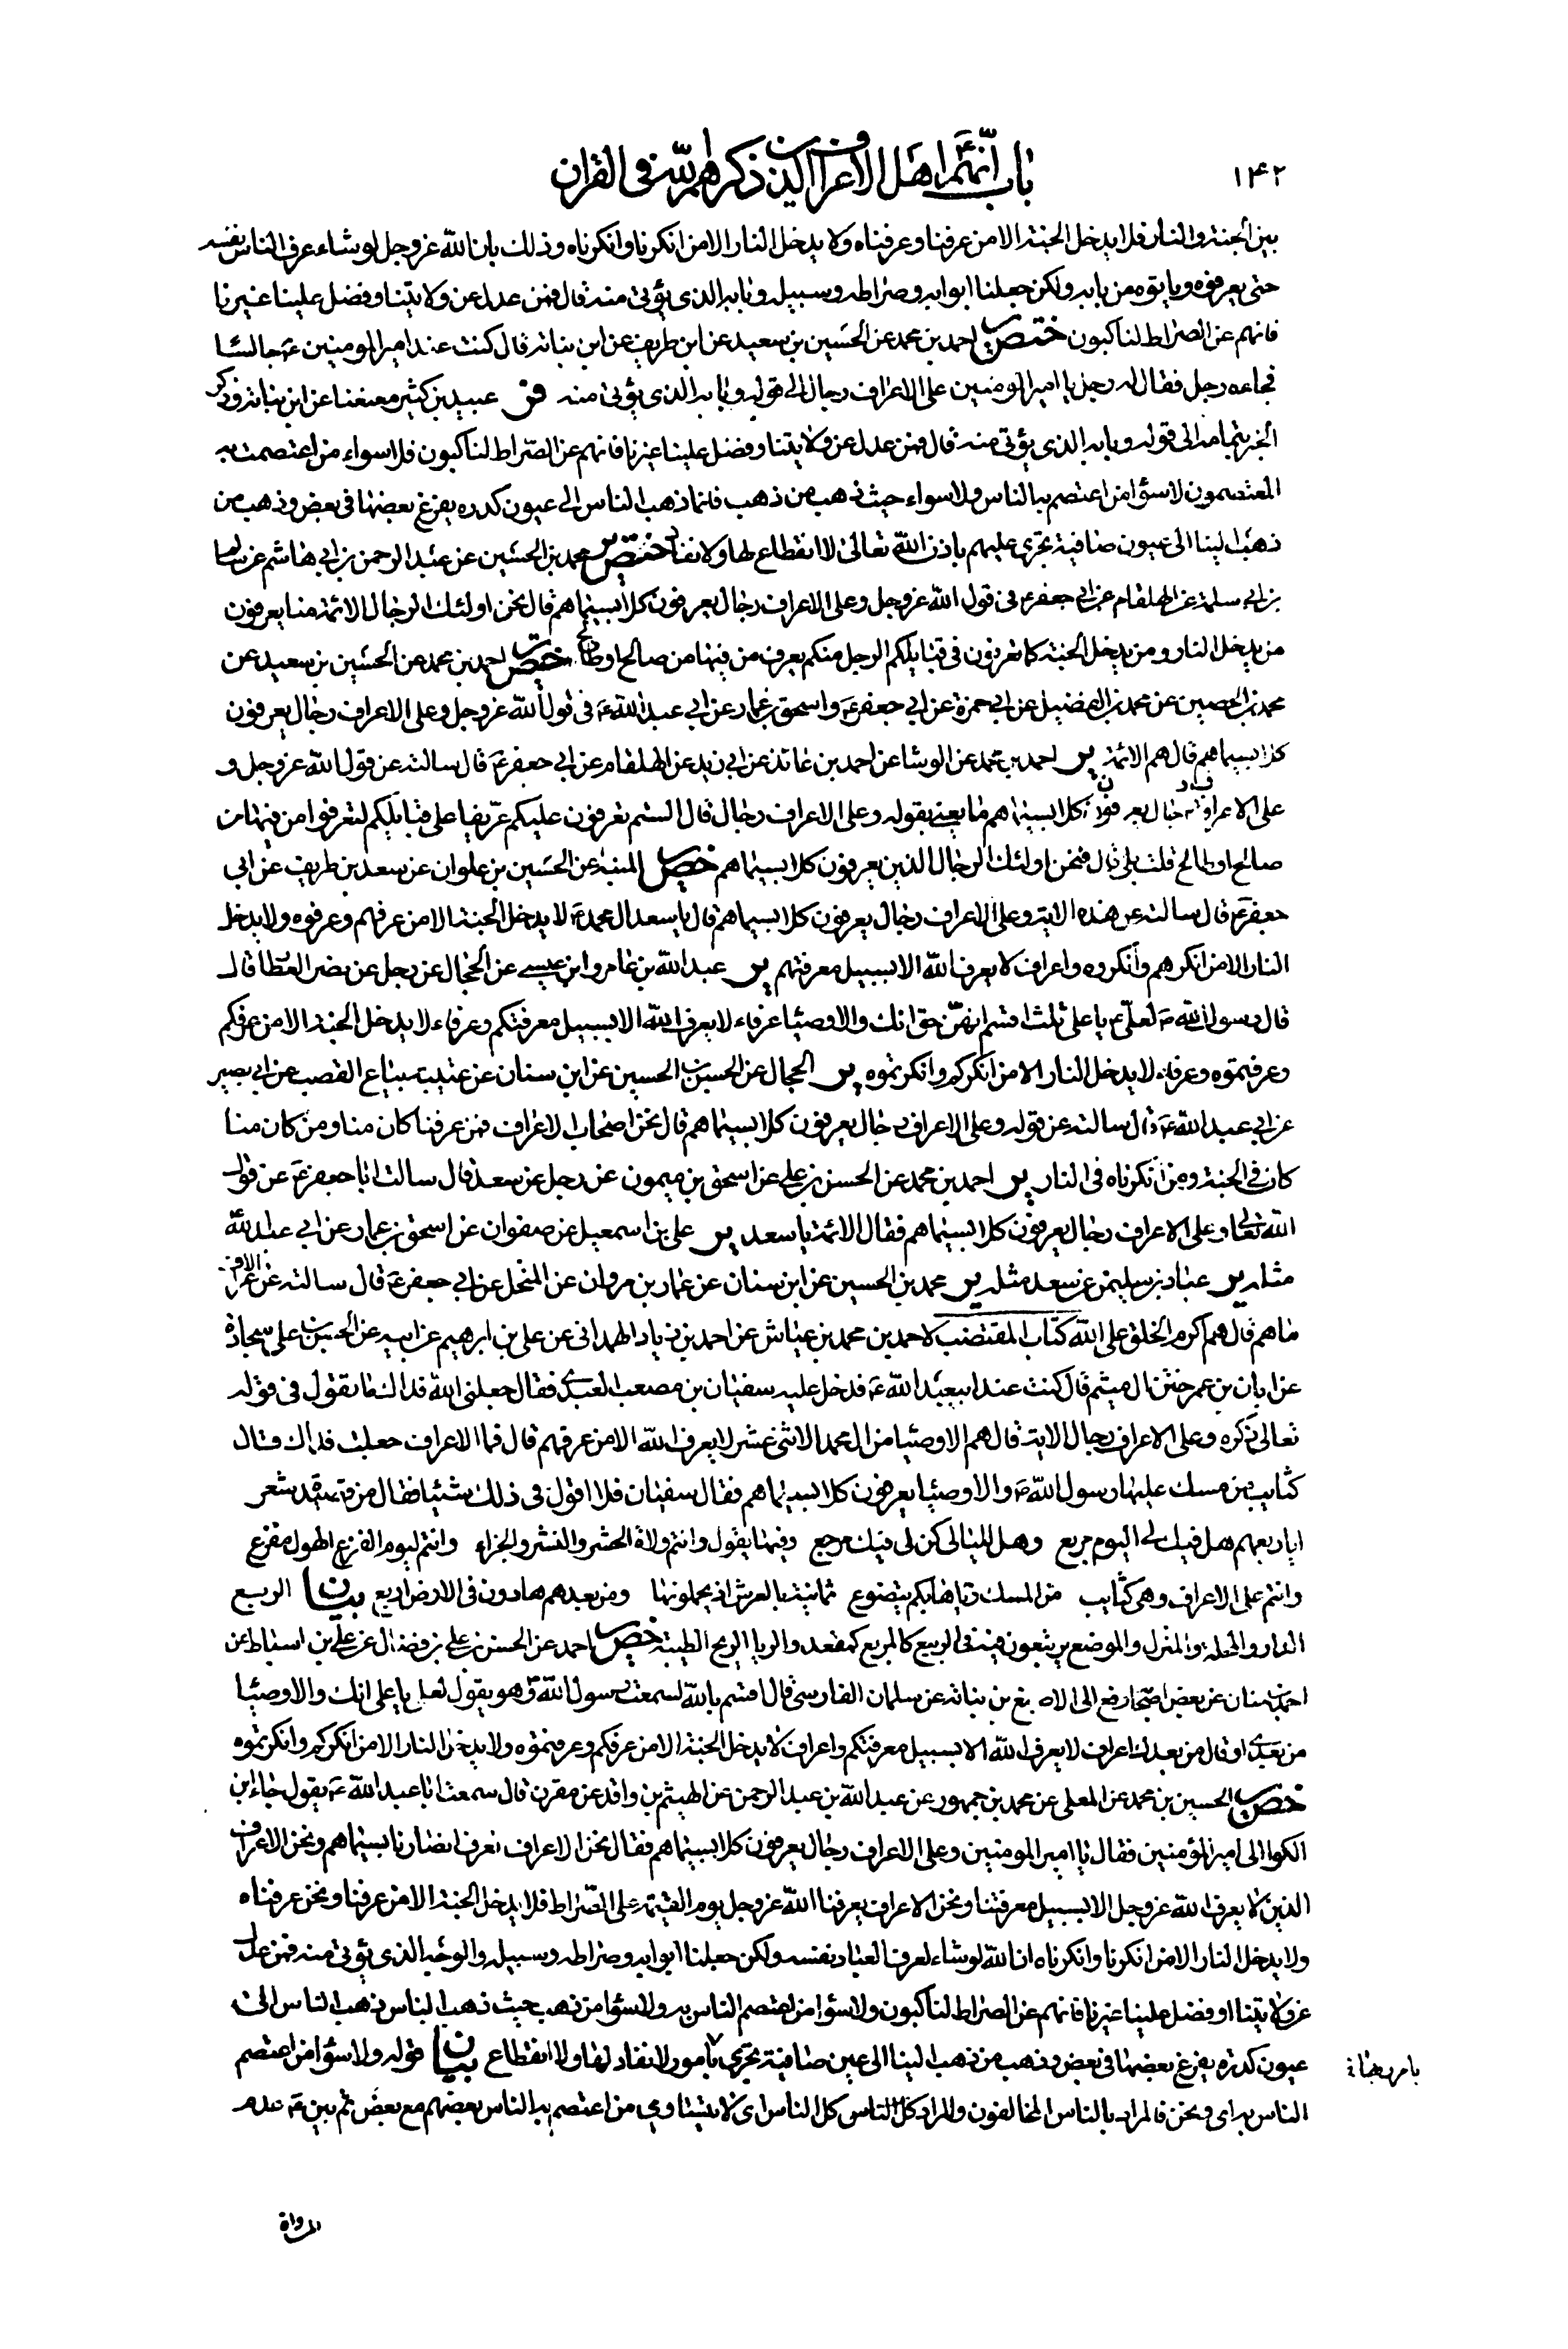 ۱۴۲
باب انهم اهل الاعراف الذين ذكرهم الله فى القران
بين الجنة والنار فلا يدخل الجنة الا من عرفنا وعرفناه ولا يدخل النار الا من انكرنا وانكرناه وذلك بان الله عز وجل لو شاء عرف الناس نفسه
حتى يعرفوه وياتوه من بابه ولكن جعلنا ابوابه وصراطه وسبيله وبابه الذى يؤتى منه قال فمن عدل عن ولايتنا وفضل علينا غيرنا
فانهم عن الصراط لناكبون ختص احمد بن محمد عن الحسين بن سعيد عن ابن طريف عن ابن نباته قال كنت عند امير المومنين ع جالسا
فجاءه رجل فقال له رجل يا امير المومنين على الاعراف رجال الى قوله وبابه الذى يؤتى منه فر عبيد بن كثير معنعنا عن ابن نباته وذكر
الخبر بتمامه الى قوله وبابه الذى يؤتى منه قال فمن عدل عن ولايتنا وفضل علينا غيرنا فانهم عن الصراط لناكبون فلا سواء من اعتصمت به
المعتصمون لا سواء من اعتصم به الناس ولا سواء حيث ذهب من ذهب فانما ذهب الناس الى عيون كدره يفرغ بعضها فى بعض وذهب من
ذهب الينا الى عيون صافية تجرى عليهم باذن الله تعالى لا انقطاع لها ولا نفاد ختص ير محمد بن الحسين عن عبد الرحمن بن ابى هاشم عن
بن ابى سلمة عن الهلقام عن ابى جعفر ع فى قول الله عز وجل وعلى الاعراف رجال يعرفون كلا بسيماهم قال نحن اولئك الرجال الائمة منا يعرفون
من يدخل النار ومن يدخل الجنة كما تعرفون فى قبايلكم الرجل منكم يعرف من فيها من صالح او طالح خص احمد بن محمد عن الحسين بن سعيد عن
محمد بن الحصين عن محمد بن الفضيل عن ابى حمزة عن ابى جعفر ع واسحق بن عمار عن ابى عبد الله ع فى قول الله عز وجل وعلى الاعراف رجال يعرفون
كلا بسيماهم قال هم الائمة ير احمد بن محمد عن الوشا عن احمد بن عائذ عن ابى زيد عن الهلقام عن ابى جعفر ع قال سالته عن قول الله عز وجل و
على الاعراف رجال يعرفون كلا بسيماهم ما يعنى بقوله وعلى الاعراف رجال قال الستم تعرفون عليكم عريفا على قبايلكم لتعرفوا من فيها من
صالح او طالح قلت بلى قال فنحن اولئك الرجال الذين يعرفون كلا بسيماهم خص المنبه عن الحسين بن علوان عن سعد بن طريف عن ابى
جعفر ع قال سالته عن هذه الاية وعلى الاعراف رجال يعرفون كلا بسيماهم قال يا سعد ال محمد ع لا يدخل الجنة الا من عرفهم وعرفوه ولا يدخل
النار الا من انكرهم وانكروه واعراف لا يعرف الله الا بسبيل معرفتهم ير عبد الله بن عامر وابن عيسى عن الحجال عن رجل عن نصر العطار قال
قال رسول الله ص لعلى ع يا على ثلث اقسم انهن حق انك والاوصيا عرفاء لا يعرف الله الا بسبيل معرفتكم وعرفاء لا يدخل الجنة الا من عرفكم
وعرفتموه وعرفاء لا يدخل النار الا من انكركم وانكرتموه ير الحجال عن الحسن بن الحسين عن ابن سنان عن عتيبة بياع القصب عن ابى بصير
عن ابى عبد الله ع قال سالته عن قوله وعلى الاعراف رجال يعرفون كلا بسيماهم قال نحن اصحاب الاعراف فمن عرفنا كان منا ومن كان منا
كان فى الجنة ومن انكرناه فى النار ير احمد بن محمد عن الحسن بن على عن اسحق بن ميمون عن رجل عن سعد قال سالت ابا جعفر ع عن قول
الله تعالى وعلى الاعراف رجال يعرفون كلا بسيماهم فقال الائمة يا سعد ير على بن اسمعيل عن صفوان عن اسحق بن عمار عن ابى عبد الله
مثله ير عباد بن سليمن عن سعد مثله ير محمد بن الحسين عن ابن سنان عن عمار بن مروان عن المنخل عن ابى جعفر ع قال سالته عن الاعراف
ما هم قال هم اكرم الخلق على الله كتاب المقتضب لاحمد بن محمد بن عياش عن احمد بن زياد الهمدانى عن على بن ابرهيم عن ابيه عن الحسن بن على سجادة
عن ابان بن عمر ختن ال ميثم قال كنت عند ابيعبد الله ع فدخل عليه سفيان بن مصعب العبدى فقال جعلنى الله فداك ما تقول فى قوله
تعالى ذكره وعلى الاعراف رجال الاية قال هم الاوصيا من ال محمد الاثنى عشر لا يعرف الله الا من عرفهم قال فما الاعراف جعلت فداك قال
كتايب من مسك عليها رسول الله ص والاوصيا يعرفون كلا بسيماهم فقال سفيان فلا اقول فى ذلك شيئا فقال من قصيدة شعر
ايا ربعهم هل فيك لى اليوم مربع وهل لليالى كن لى فيك مرجع وفيها يقول وانتم ولاة الحشر والنشر والجزاء وانتم ليوم الفزع الهول مفزع
وانتم على الاعراف وهى كتايب من المسك رياها بكم يتضوع ثمانية بالعرش اذ يحملونها ومن بعدهم هادون فى الارض اربع بيان الربع
الدار والمحلة والمنزل والموضع يرتبعون فيه فى الربيع كالمربع كمقعد والريا الريح الطيبة خص احمد عن الحسن بن على بن فضال عن على بن اسباط عن
احمد بن سنان عن بعض اصحابه رفع الى الاصبغ بن نباتة عن سلمان الفارسى قال اقسم بالله لسمعت رسول الله ص وهو يقول لعلى يا على انك والاوصيا
من بعدى او قال من بعدك اعراف لا يعرف الله الا بسبيل معرفتكم واعراف لا يدخل الجنة الا من عرفكم وعرفتموه ولا يدخل النار الا من انكركم وانكرتموه
خص الحسين بن محمد عن المعلى عن محمد بن جمهور عن عبد الله بن عبد الرحمن عن الهيثم بن واقد عن مقرن قال سمعت ابا عبد الله ع يقول جاء ابن
الكوا الى امير المؤمنين فقال يا امير المومنين وعلى الاعراف رجال يعرفون كلا بسيماهم فقال نحن الاعراف نعرف انصارنا بسيماهم ونحن الاعراف
الذين لا يعرف الله عز وجل الا بسبيل معرفتنا ونحن الاعراف يعرفنا الله عز وجل يوم القيمة على الصراط فلا يدخل الجنة الا من عرفنا ونحن عرفناه
ولا يدخل النار الا من انكرنا وانكرناه ان الله لو شاء لعرف العباد نفسه ولكن جعلنا ابوابه وصراطه وسبيله والوجه الذى يؤتى منه فمن عدل
عن ولايتنا او فضل علينا غيرنا فانهم عن الصراط لناكبون ولا سواء من اعتصم الناس به ولا سواء من ذهب حيث ذهب الناس ذهب الناس الى
عيون كدرة يفرغ بعضها فى بعض وذهب من ذهب الينا الى عين صافية تجرى بامور لا نفاد لها ولا انقطاع بيان قوله ولا سواء من اعتصم
بامر ربها
الناس به اى ونحن فالمراد بالناس المخالفون والمراد كل الناس اى لا يتساوى من اعتصم به الناس بعضهم مع بعض ثم بين ع عدم
المساواة